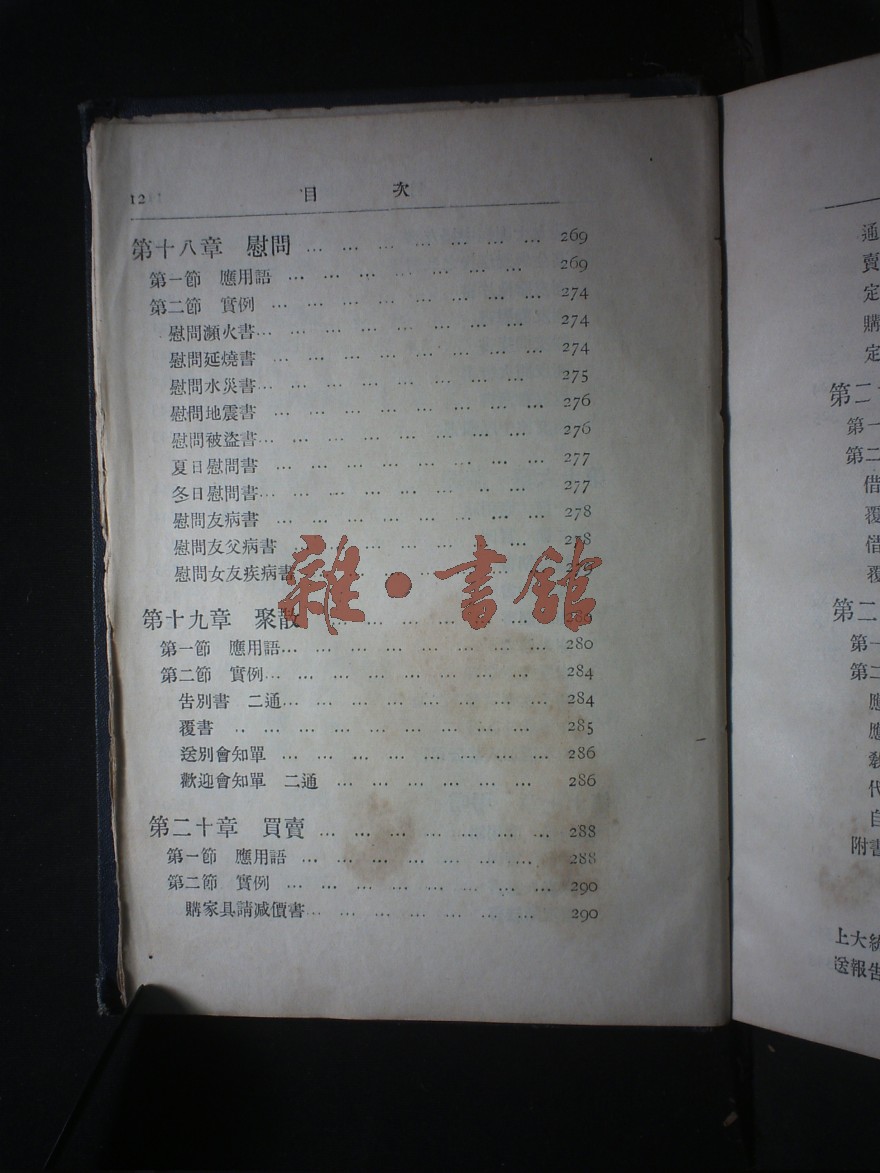 12 目 次
第十八章 慰問 … … … … … … … 269
第一節 應用語 … … … … … … … 269
第二節 實例 … … … … … … … … 274
慰問瀕火書… … … … … … … … 274
慰問延燒書 … … … … … … … … 274
慰問水災書… … … … … … … … 275
慰問地震書 … … … … … … … … 276
慰問被盜書… … … … … … … … 276
夏日慰問書 … … … … … … … … 277
冬日慰問書… … … … … … … … 277
慰問友病書 … … … … … … … … 278
慰問友父病書 … … … … … … … 278
慰問女友疾病書
雜·書舘
第十九章 聚散 … … … … … … …
第一節 應用語… … … … … … … … 280
第二節 實例… … … … … … … … 284
告別書 二通… … … … … … … … 284
覆書 … … … … … … … … … 285
送別會知單 … … … … … … … … 286
歡迎會知單 二通 … … … … … … 286
第二十章 買賣 … … … … … … … 288
第一節 應用語 … … … … … … … 288
第二節 實例 … … … … … … … … 290
購家具請減價書… … … … … … … 290
通
賣
定
購
定
第二
第一
第二
借
覆
借
覆
第二
第一
第二
應
應
代
自
附書
上大
送報告